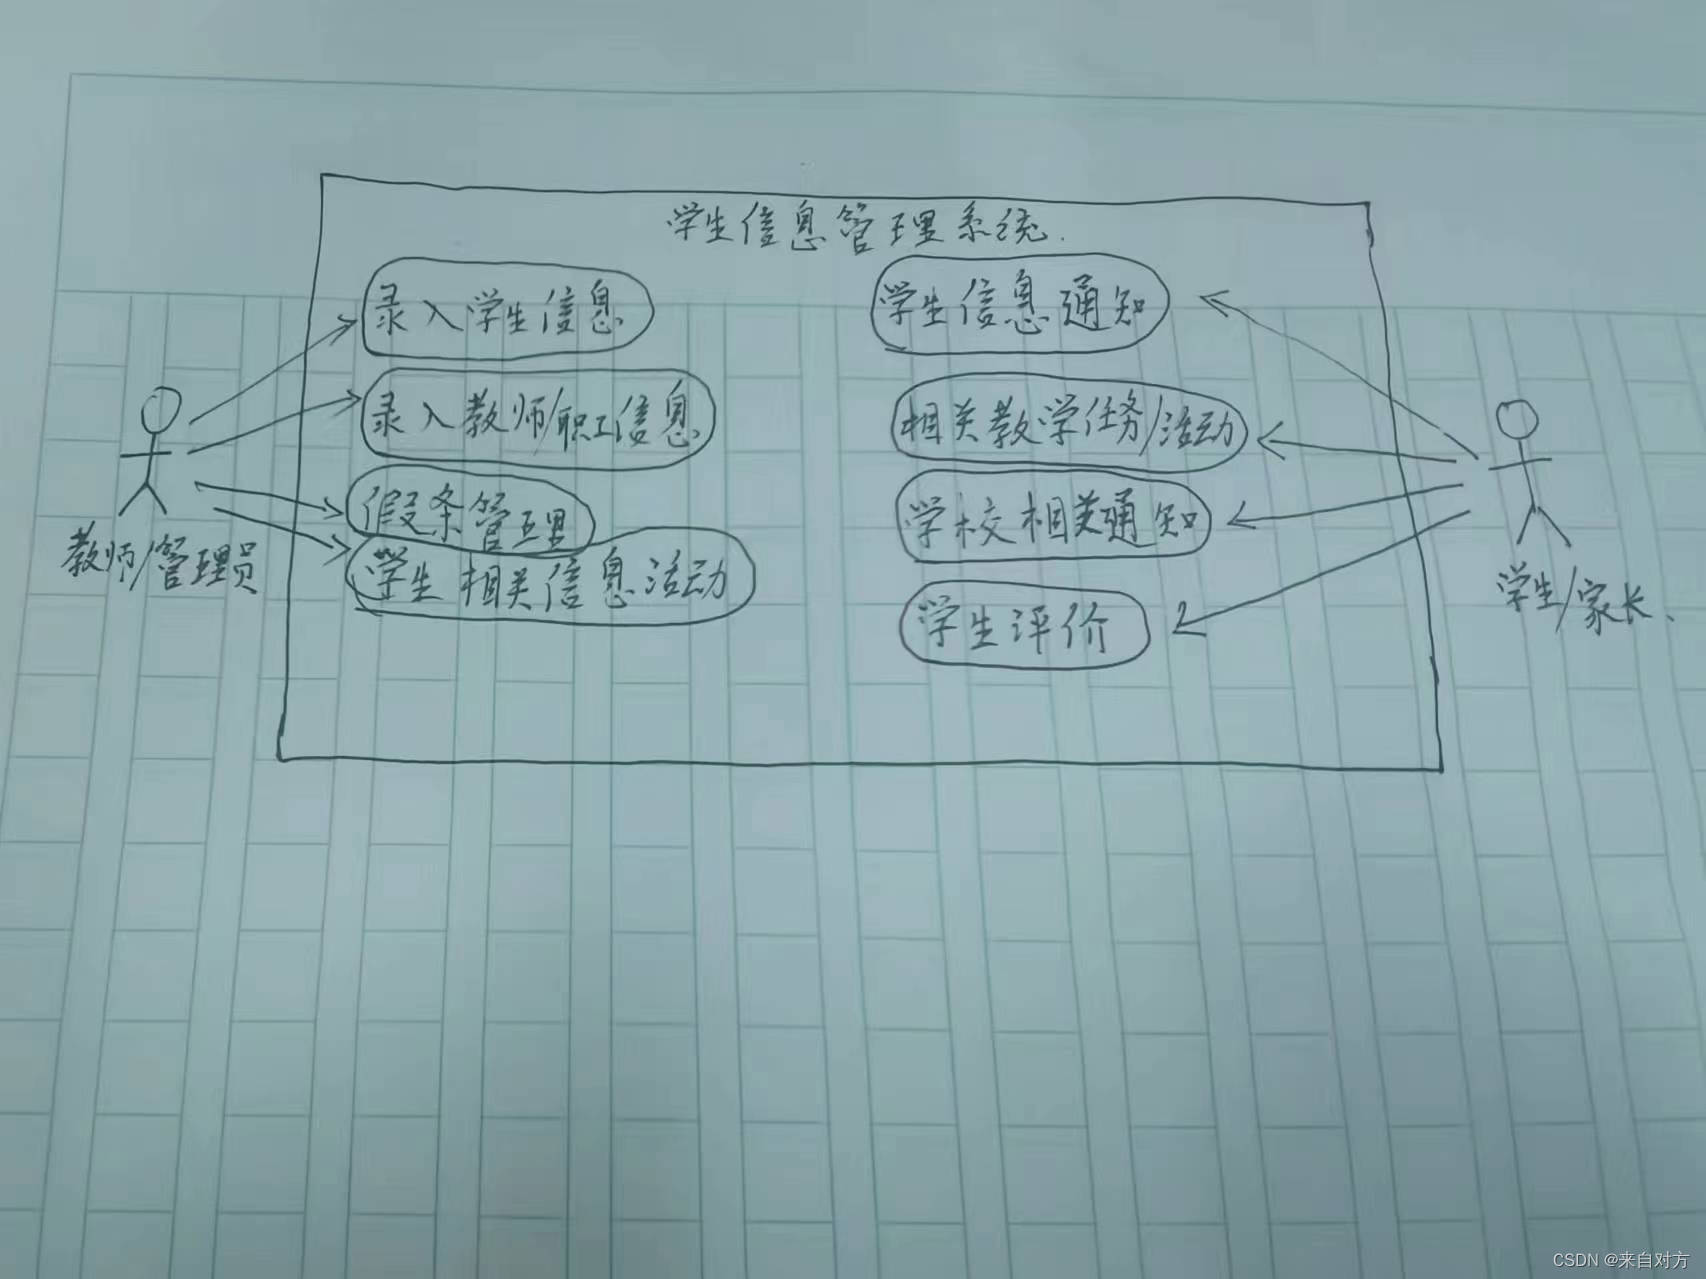 学生信息管理系统.
录入学生信息
录入教师/职工信息
假条管理
学生相关信息活动
学生信息通知
相关教学任务/活动
学校相关通知
学生评价
教师/管理员
学生/家长、
CSDN @来自对方